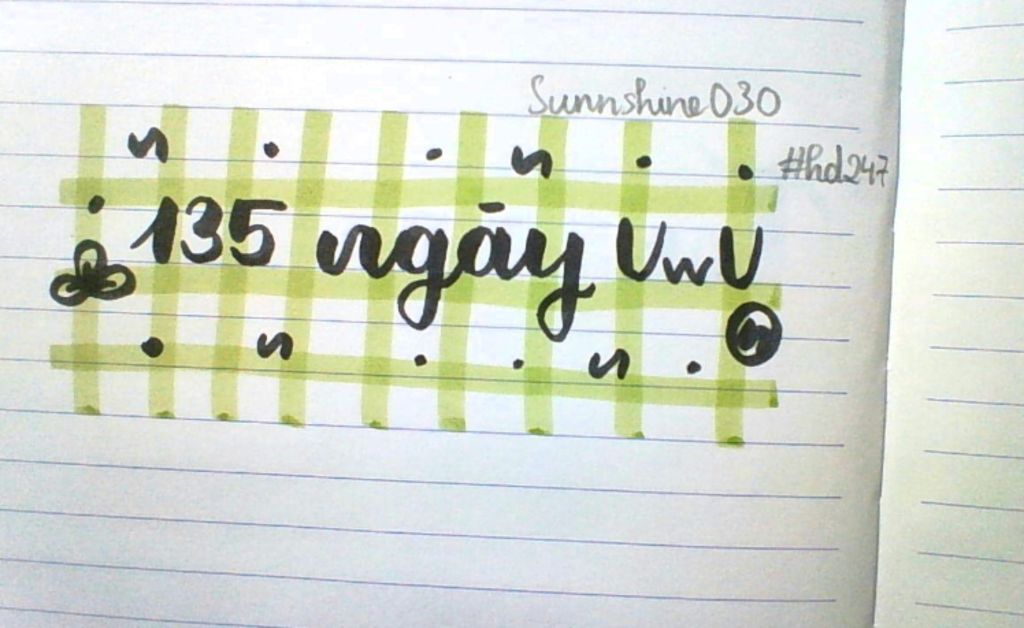 Sunnshine030
#hd247
135 ngāy UwU